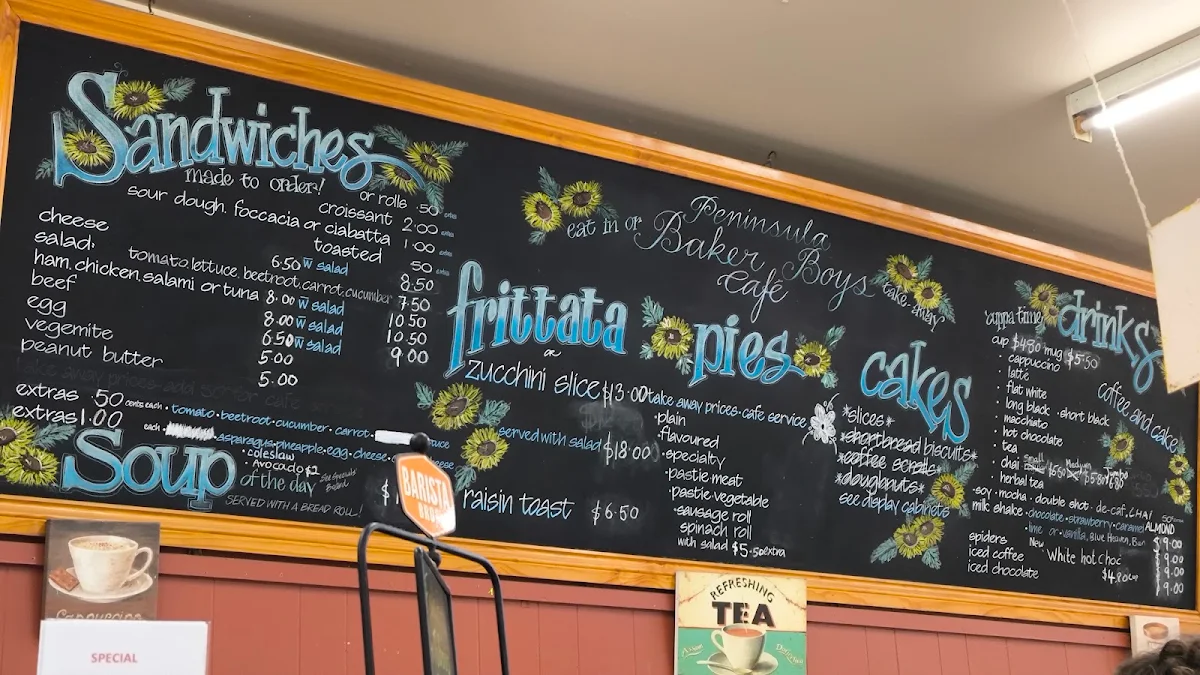 Sandwiches
made to order!
or rolls .50 extra
croissant 2.00 extra
sour dough, foccacia or ciabatta 1.00 extra
toasted 50 extra
cheese 6.50 w salad 8.50
salad: tomato.lettuce.beetroot.carrot.cucumber 7.50
ham.chicken.salami or tuna 8.00 w salad 10.50
beef 8.00 w salad 10.50
egg 6.50 w salad 9.00
vegemite 5.00
peanut butter 5.00
extras .50 cents each • tomato • beetroot • cucumber • carrot
extras 1.00 each • asparagus • pineapple • egg • cheese
• coleslaw
• Avocado $2
Soup
of the day
See Specials Board
SERVED WITH A BREAD ROLL!
$
eat in or
Peninsula
Baker Boys
Café
take-away
frittata
or
zucchini slice $13.00
served with salad $18.00
raisin toast $6.50
pies
take away prices • cafe service
•plain
•flavoured
•specialty
•pastie meat
•pastie vegetable
•sausage roll
spinach roll
with salad $5.50 extra
cakes
*slices*
*shortbread biscuits*
*coffee scrolls*
*doughnuts*
see display cabinets
'cuppa time'
drinks
cup $4.80 mug $5.50
• cappuccino
• latte
• flat white
• long black • short black
• macchiato
• hot chocolate
• tea
• chai small Medium Jumbo
• herbal tea
coffee and cake
•soy • mocha • double shot • de-caf. CHAI
ALMOND
milk shake • chocolate • strawberry • caramel
• lime or • vanilla, Blue Heaven, Ban $9.00
spiders 9.00
iced coffee 9.00
iced chocolate 9.00
New White hot Choc $4.80 cup
BARISTA
Cappuccino
SPECIAL
REFRESHING
TEA
Delicious